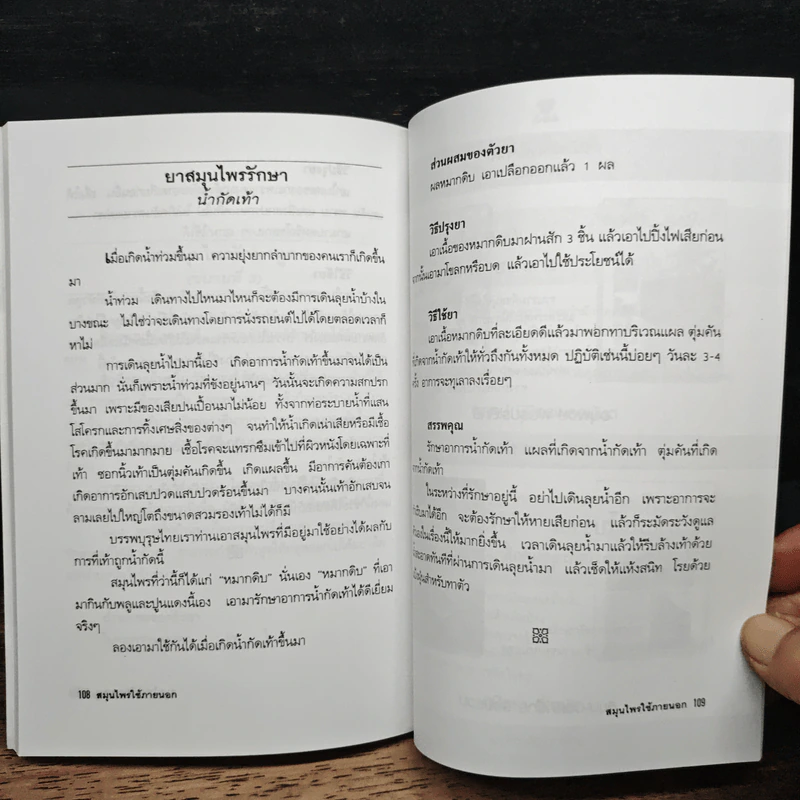 ยาสมุนไพรรักษา
น้ำกัดเท้า
เมื่อเกิดน้ำท่วมขึ้นมา ความยุ่งยากลำบากของคนเราก็เกิดขึ้น
มา
น้ำท่วม เดินทางไปไหนมาไหนก็จะต้องมีการเดินลุยน้ำบ้างใน
บางขณะ ไม่ใช่ว่าจะเดินทางโดยการนั่งรถยนต์ไปได้โดยตลอดเวลาก็
หาไม่
การเดินลุยน้ำไปมานี้เอง เกิดอาการน้ำกัดเท้าขึ้นมาจนได้เป็น
ส่วนมาก นั่นก็เพราะน้ำท่วมที่ขังอยู่นานๆ วันนั้นจะเกิดความสกปรก
ขึ้นมา เพราะมีของเสียปนเปื้อนมาไม่น้อย ทั้งจากท่อระบายน้ำที่แสน
โสโครกและการทิ้งเศษสิ่งของต่างๆ จนทำให้น้ำเกิดเน่าเสียหรือมีเชื้อ
โรคเกิดขึ้นมามากมาย เชื้อโรคจะแทรกซึมเข้าไปที่ผิวหนังโดยเฉพาะที่
เท้า ซอกนิ้วเท้าเป็นตุ่มคันเกิดขึ้น เกิดแผลขึ้น มีอาการคันต้องเกา
เกิดอาการอักเสบปวดแสบปวดร้อนขึ้นมา บางคนนั้นเท้าอักเสบจน
ลามเลยไปใหญ่โตถึงขนาดสวมรองเท้าไม่ได้ก็มี
บรรพบุรุษไทยเราท่านเอาสมุนไพรที่มีอยู่มาใช้อย่างได้ผลกับ
การที่เท้าถูกน้ำกัดนี้
สมุนไพรที่ว่านี้ก็ได้แก่ "หมากดิบ" นั่นเอง "หมากดิบ" ที่เอา
มากินกับพลูและปูนแดงนี้เอง เอามารักษาอาการน้ำกัดเท้าได้ดีเยี่ยม
จริงๆ
ลองเอามาใช้กันได้เมื่อเกิดน้ำกัดเท้าขึ้นมา
108 สมุนไพรใช้ภายนอก
ส่วนผสมของตัวยา
ผลหมากดิบ เอาเปลือกออกแล้ว 1 ผล
วิธีปรุงยา
เอาเนื้อของหมากดิบมาฝานสัก 3 ชิ้น แล้วเอาไปปิ้งไฟเสียก่อน
จากนั้นเอามาโขลกหรือบด แล้วเอาไปใช้ประโยชน์ได้
วิธีใช้ยา
เอาเนื้อหมากดิบที่ละเอียดดีแล้วมาพอกทาบริเวณแผล ตุ่มคัน
ที่เกิดจากน้ำกัดเท้าให้ทั่วถึงกันทั้งหมด ปฏิบัติเช่นนี้บ่อยๆ วันละ 3-4
ครั้ง อาการจะทุเลาลงเรื่อยๆ
สรรพคุณ
รักษาอาการน้ำกัดเท้า แผลที่เกิดจากน้ำกัดเท้า ตุ่มคันที่เกิด
จากน้ำกัดเท้า
ในระหว่างที่รักษาอยู่นี้ อย่าไปเดินลุยน้ำอีก เพราะอาการจะ
ขึ้นมาได้อีก จะต้องรักษาให้หายเสียก่อน แล้วก็ระมัดระวังดูแล
ตัวเองในเรื่องนี้ให้มากยิ่งขึ้น เวลาเดินลุยน้ำมาแล้วให้รีบล้างเท้าด้วย
สะอาดทันทีที่ผ่านการเดินลุยน้ำมา แล้วเช็ดให้แห้งสนิท โรยด้วย
แป้งฝุ่นสำหรับทาตัว
สมุนไพรใช้ภายนอก 109